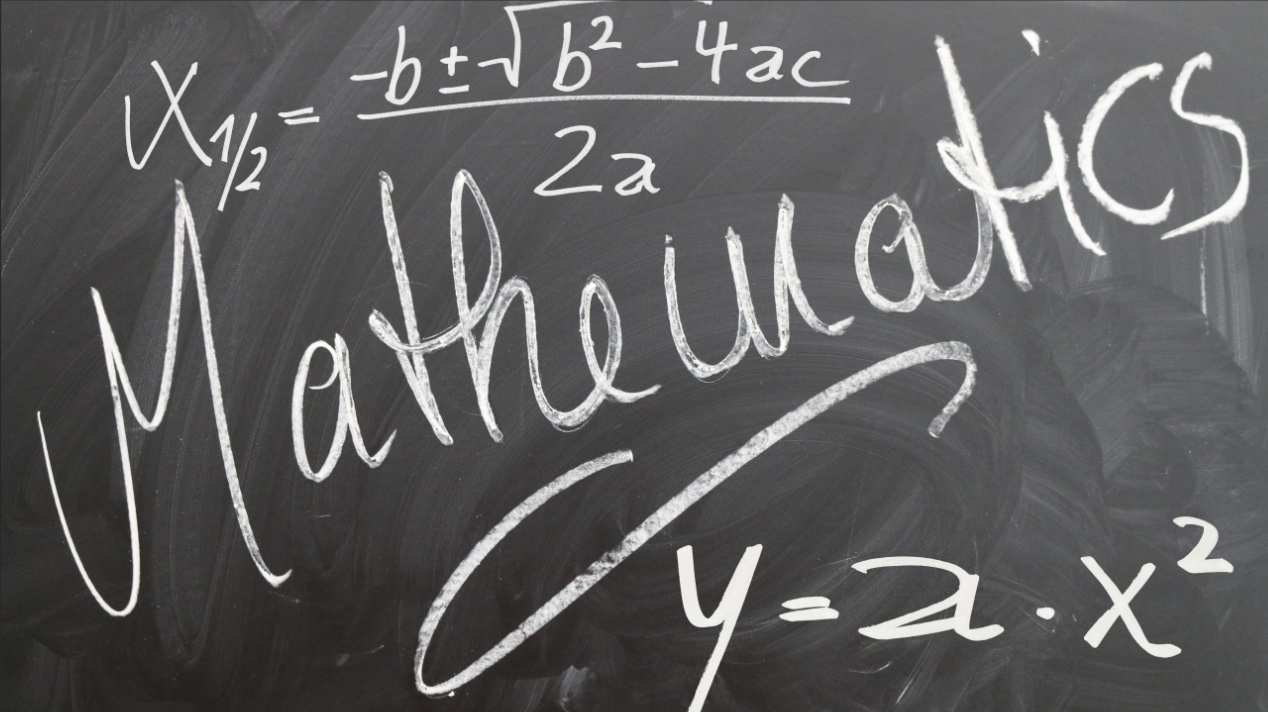 x₁/₂ = -b ± √b² - 4ac
2a
Mathematics
y = a · x²